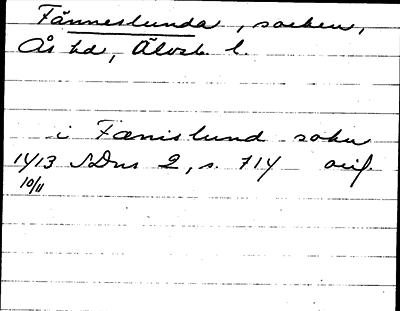 Fänneslunda, socken,
Ås hd, Älvsb. l.
i Fænislund sokn
1413 SDns 2, s. 714 orig.
10/11